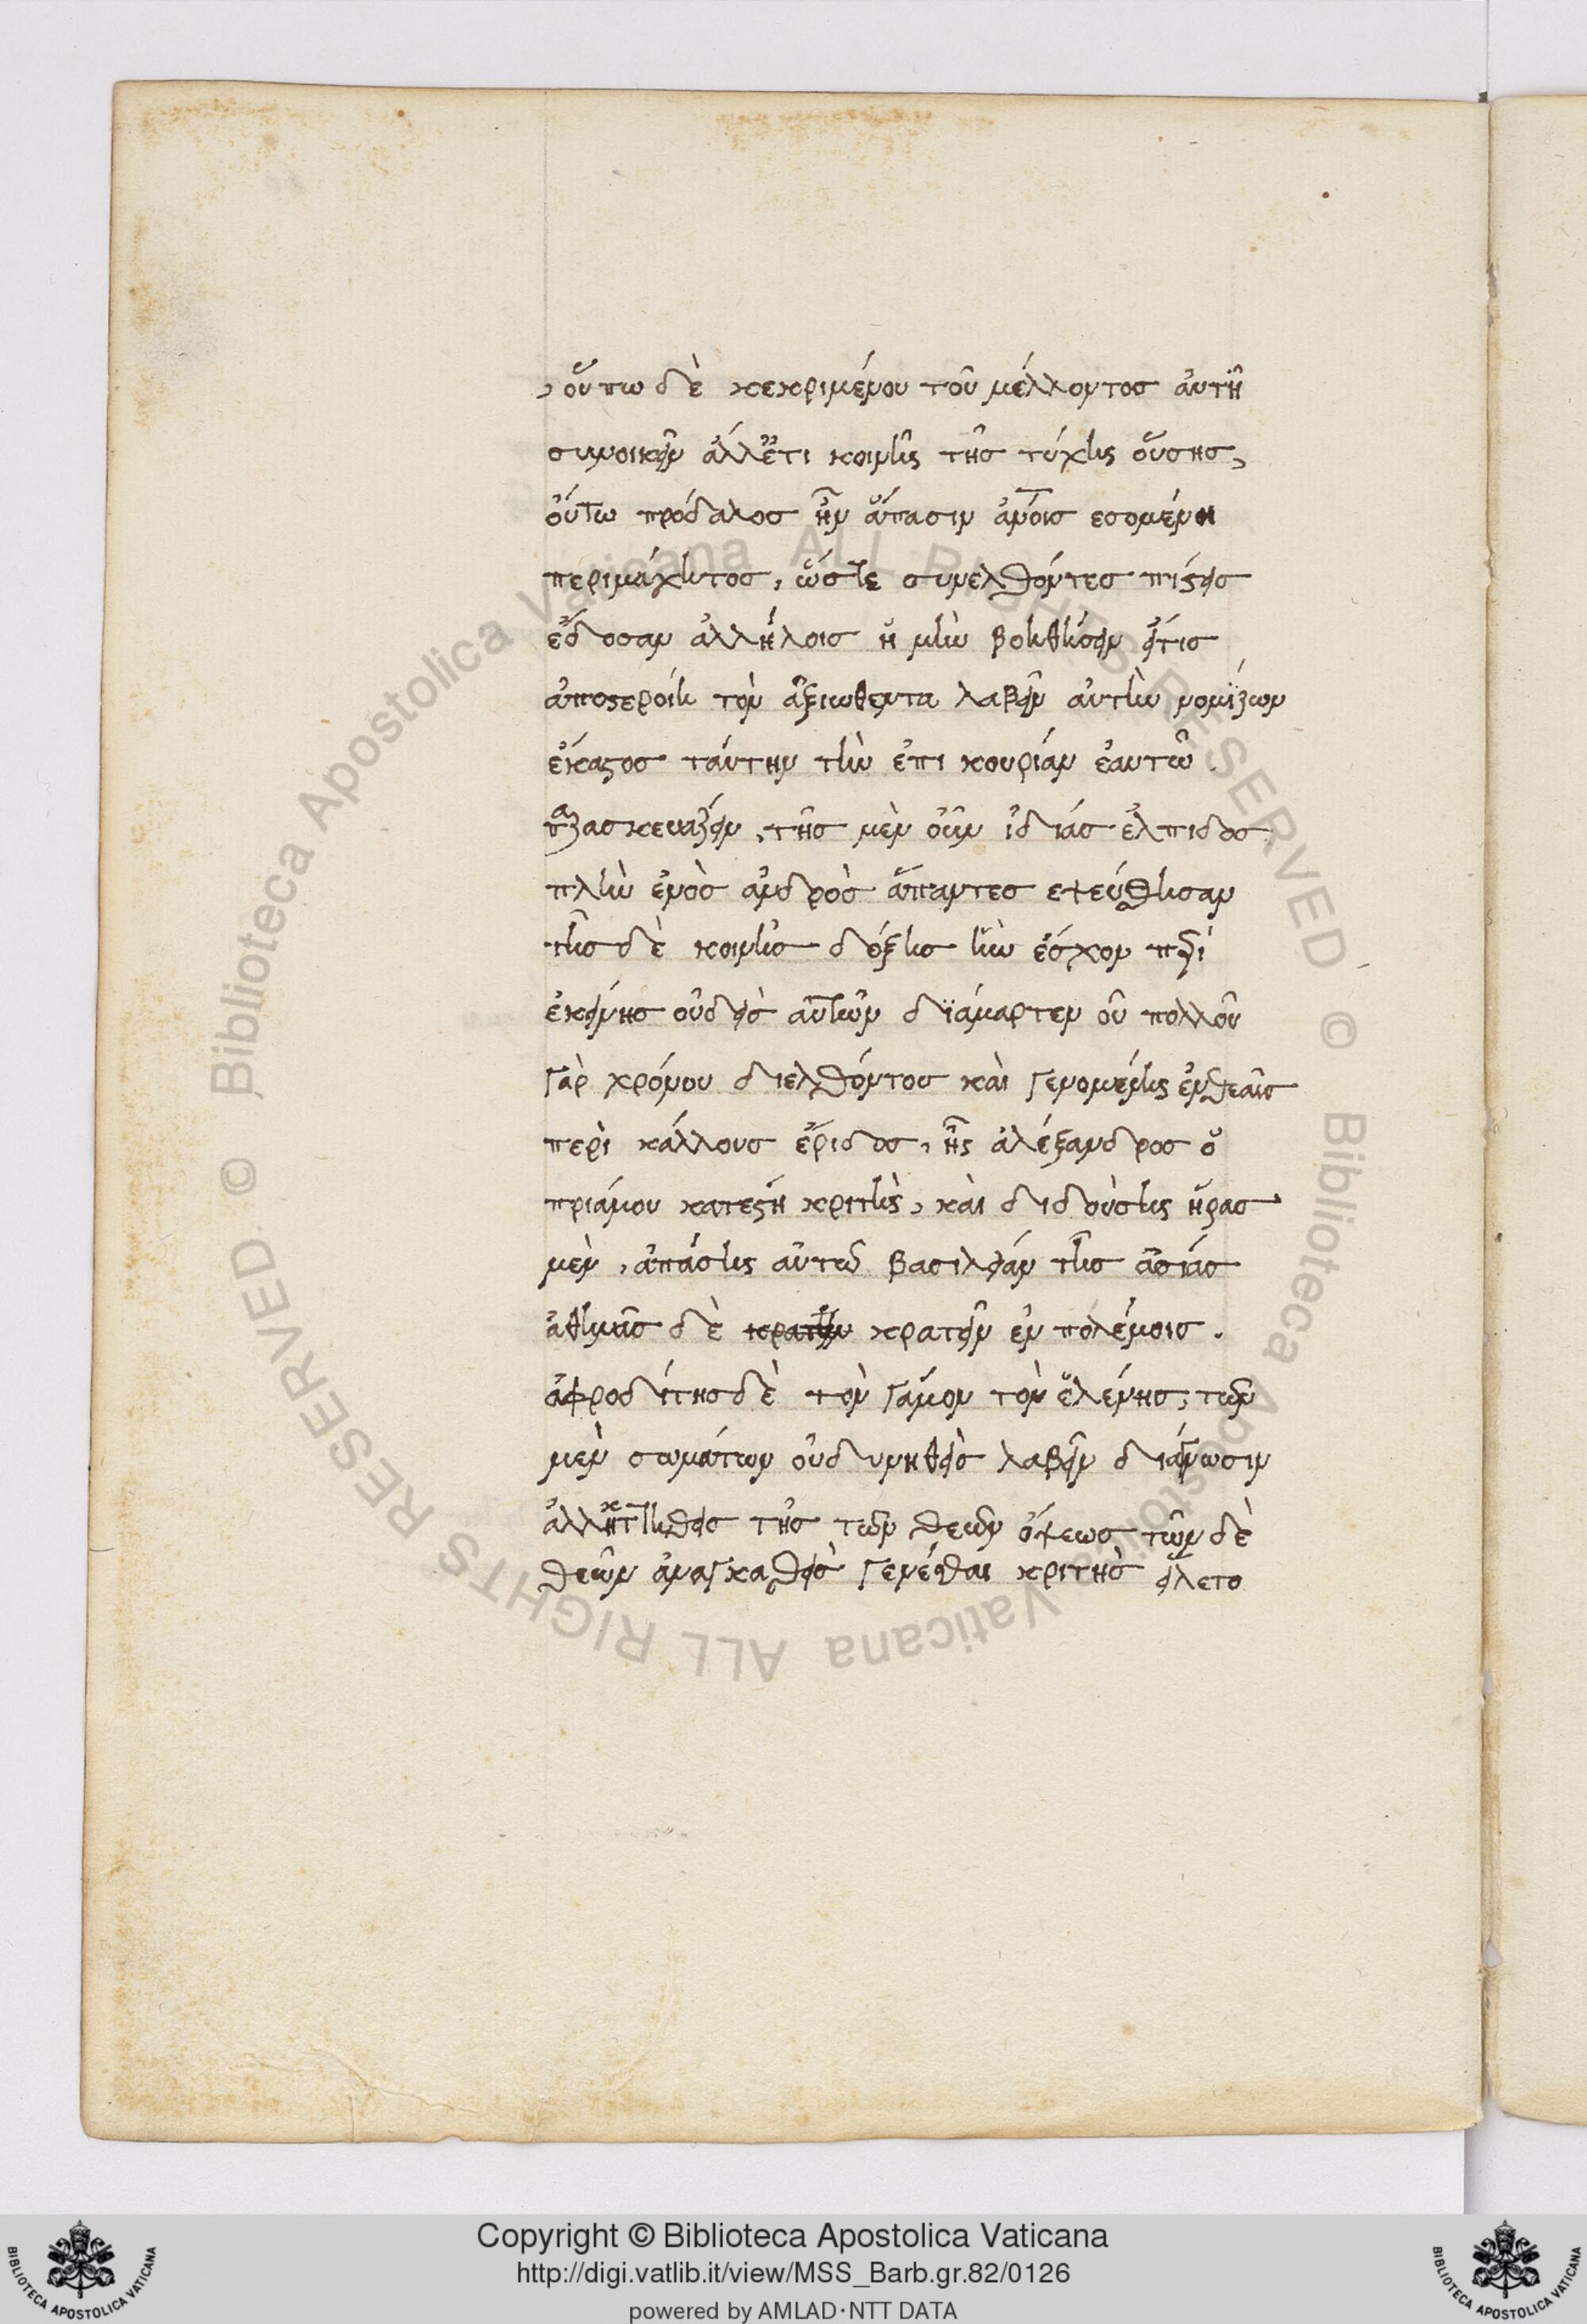 , οὔπω δὲ κεκριμένου τοῦ μέλλοντος ἀυτῆ
συνοικεῖν ἀλλἔτι κοινῆς τῆς τύχης οὔσης,
ὁύτω πρόδαλος ἦν ἅπασιν ἀνοις εσομένη
περιμάχητος, ὥστε συνελθόντες πίστεις
ἔδοσαν ἀλλήλοις ἢ μὴν βοηθήσειν ἔιτις
ἀποστεροίη τὸν ἀξιωθεντα λαβεῖν ἀυτὴν νομίζων
ἕκαστος τάυτην τὴν ἐπι κουρίαν ἑαυτῶ.
παρασκευάζειν, τῆς μὲν οὖν ἰδιάς ἐλπιδος
πλὴν ἑνὸς ἀνδρὸς ἅπαντες εψεύσθησαν
τῆς δὲ κοινῆς δόξης ἣν ἔσχον περὶ
ἐκείνης οὐδεὶς αὐτῶν διάμαρτεν οὐ πολλοῦ
γὰρ χρόνου διελθόντος κὰι γενομένης ἐνθεαῖς
περὶ κάλλους ἔριδος, ἧς ἀλέξανδρος ὁ
πριάμου κατεστή κριτὴς, κὰι διδούσης ἥρας
μὲν, ἁπάσης αὐτῶ βασιλείαν τῆς ἀσιάς
ἀθηνᾶς δὲ κρατεῖν κρατεῖν ἐν πολέμοις.
ἀφροδίτης δὲ τὸν γάμον τὸν ἑλένης, τῶν
μὲν σωμάτων οὐδυνηθεὶς λαβεῖν διάγνωσιν
ἀλλἡττηθεις τῆς τῶν θεῶν ὄψεως τῶν δὲ
θεῶν ἀναγκασθεὶς γενέσθαι κριτὴς εἵλετο
Copyright © Biblioteca Apostolica Vaticana
http://digi.vatlib.it/view/MSS_Barb.gr.82/0126
powered by AMLAD·NTT DATA
BIBLIOTECA APOSTOLICA VATICANA
BIBLIOTECA APOSTOLICA VATICANA
© Biblioteca Apostolica Vaticana ALL RIGHTS RESERVED
© Biblioteca Apostolica Vaticana ALL RIGHTS RESERVED